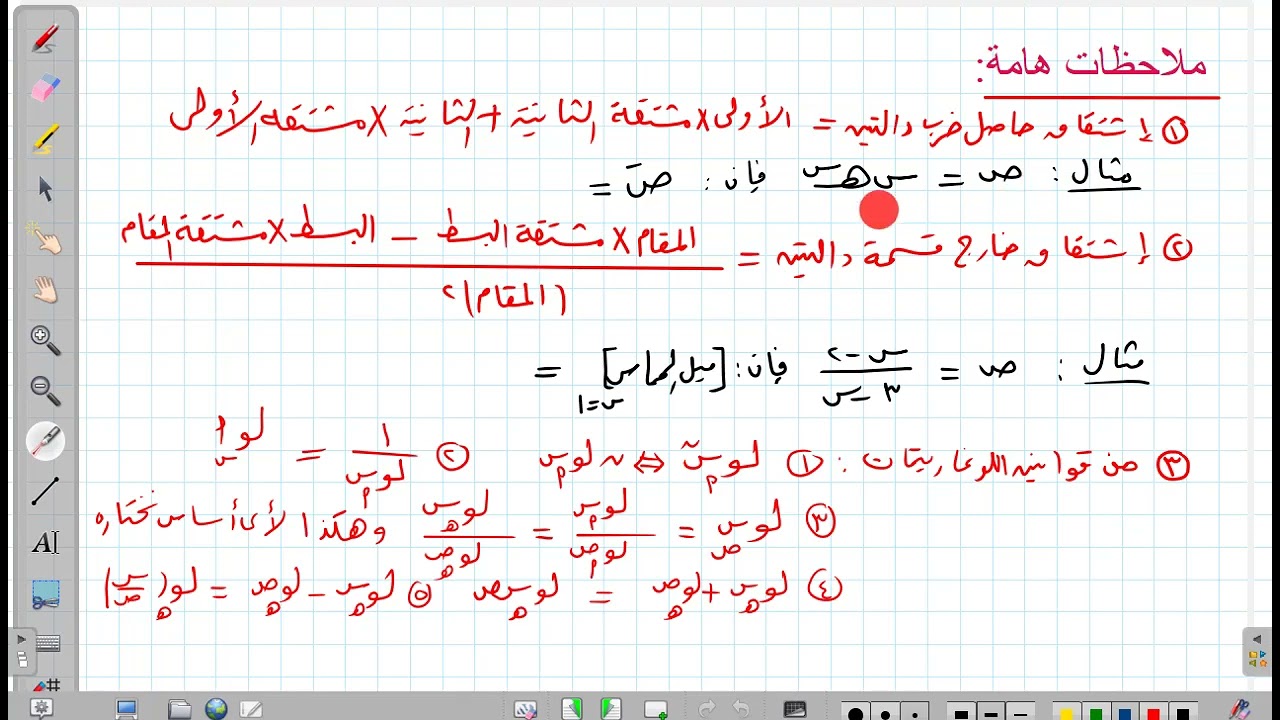 ملاحظات هامة:
① إشتقاق حاصل ضرب دالتين = الأولى × مشتقة الثانية + الثانية × مشتقة الأولى
مثال: ص = س هـ^س فإن: صَ =
② إشتقاق خارج قسمة دالتين = (المقام × مشتقة البسط – البسط × مشتقة المقام) / (المقام)^٢
مثال: ص = (س – ٢) / (٣ – س) فإن: [ميل المماس]_{س=١} =
③ من قوانين اللوغاريتمات: ① لو_م س^ن ⇔ ن لو_م س ② ١ / لو_م س = لو_س م
③ لو_ص س = لو_م س / لو_م ص = لو_هـ س / لو_هـ ص وهكذا لأي أساس نختاره
④ لو_هـ س + لو_هـ ص = لو_هـ س ص ⑤ لو_هـ س – لو_هـ ص = لو_هـ (س/ص)
A